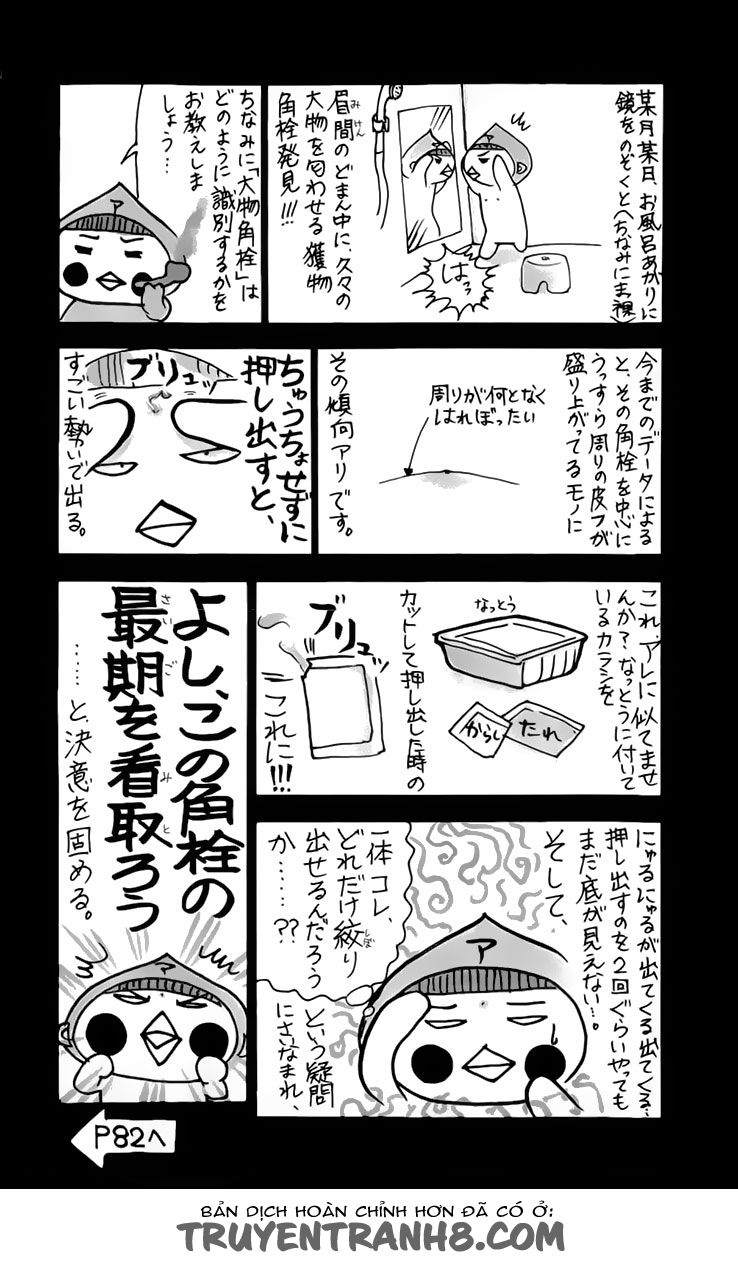 某月某日、お風呂あがりに
鏡をのぞくと(ちなみに全裸)
はっ
眉間のどまん中に、久々の
みけん
大物を匂わせる獲物
角栓発見!!!
ちなみに「大物角栓」は
どのように識別するかを
お教えしま
しょう…
ア
今までのデータによる
と、その角栓を中心に
うっすら周りの皮フが
盛り上がってるモノに
周りが何となく
はれぼったい
その傾向アリです。
ちゅうちょせずに
押し出すと、
ブリュッ
すごい勢いで出る。
これ、アレに似てませ
んか?なっとうに付いて
いるカラシを
なっとう
からし
たれ
カットして押し出した時の
ブリュッ
これに!!!
にゅるにゅるが出てくる出てくる…
押し出すのを2回ぐらいやっても
まだ底が見えない…。
そして、
一体コレ、
どれだけ絞り
しぼ
出せるんだろう
か……??
ア
という疑問
にさいなまれ、
よし、この角栓の
最期を看取ろう
さいご
みと
……と、決意を固める。
ア
P82へ
BẢN DỊCH HOÀN CHỈNH HƠN ĐÃ CÓ Ở:
TRUYENTRANH8.COM